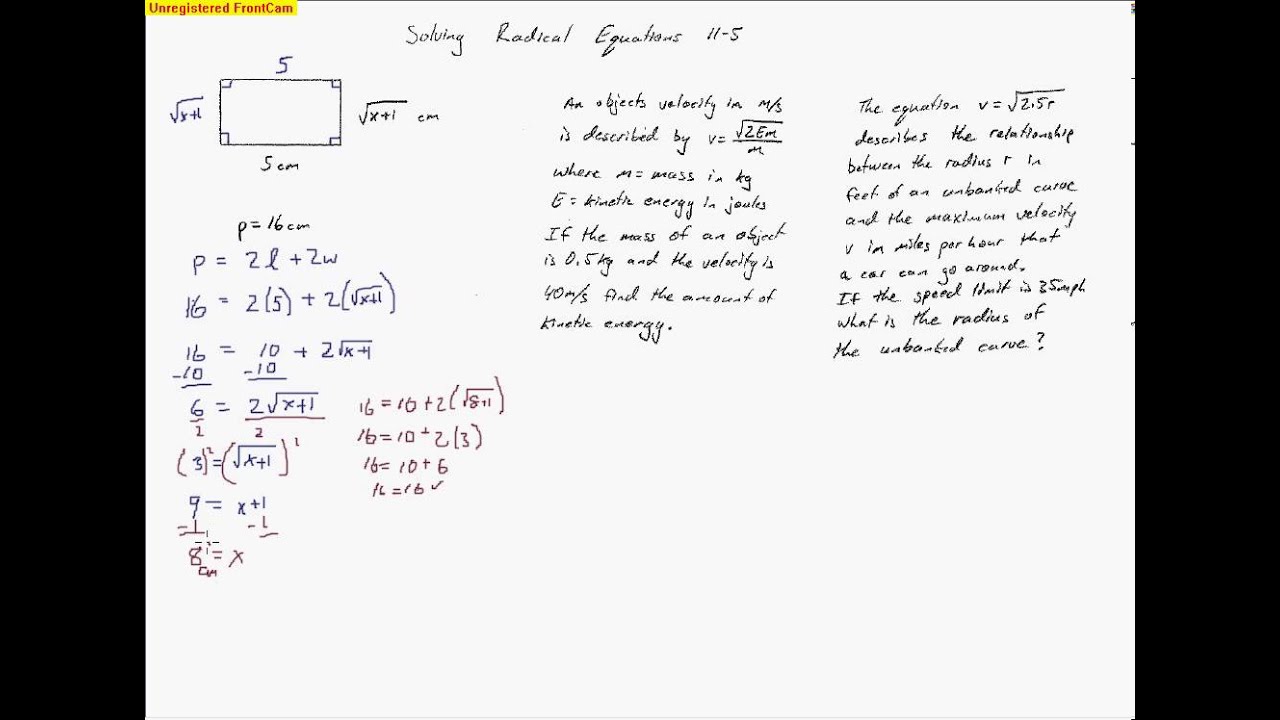 Unregistered FrontCam
Solving Radical Equations 11-5
5
√x+1
√x+1 cm
5 cm
p = 16 cm
p = 2l + 2w
16 = 2(5) + 2(√x+1)
16 = 10 + 2√x+1
-10 -10
6 = 2√x+1
2 2
(3)² = (√x+1)²
9 = x+1
-1 -1
8 = x
cm
16 = 10 + 2(√8+1)
16 = 10 + 2(3)
16 = 10 + 6
16 = 16 ✓
An objects velocity in m/s
is described by v = √2Em/m
where m = mass in kg
E = kinetic energy in joules
If the mass of an object
is 0.5 kg and the velocity is
40 m/s find the amount of
kinetic energy.
The equation v = √2.5r
describes the relationship
between the radius r in
feet of an unbanked curve
and the maximum velocity
v in miles per hour that
a car can go around.
If the speed limit is 35mph
what is the radius of
the unbanked curve?